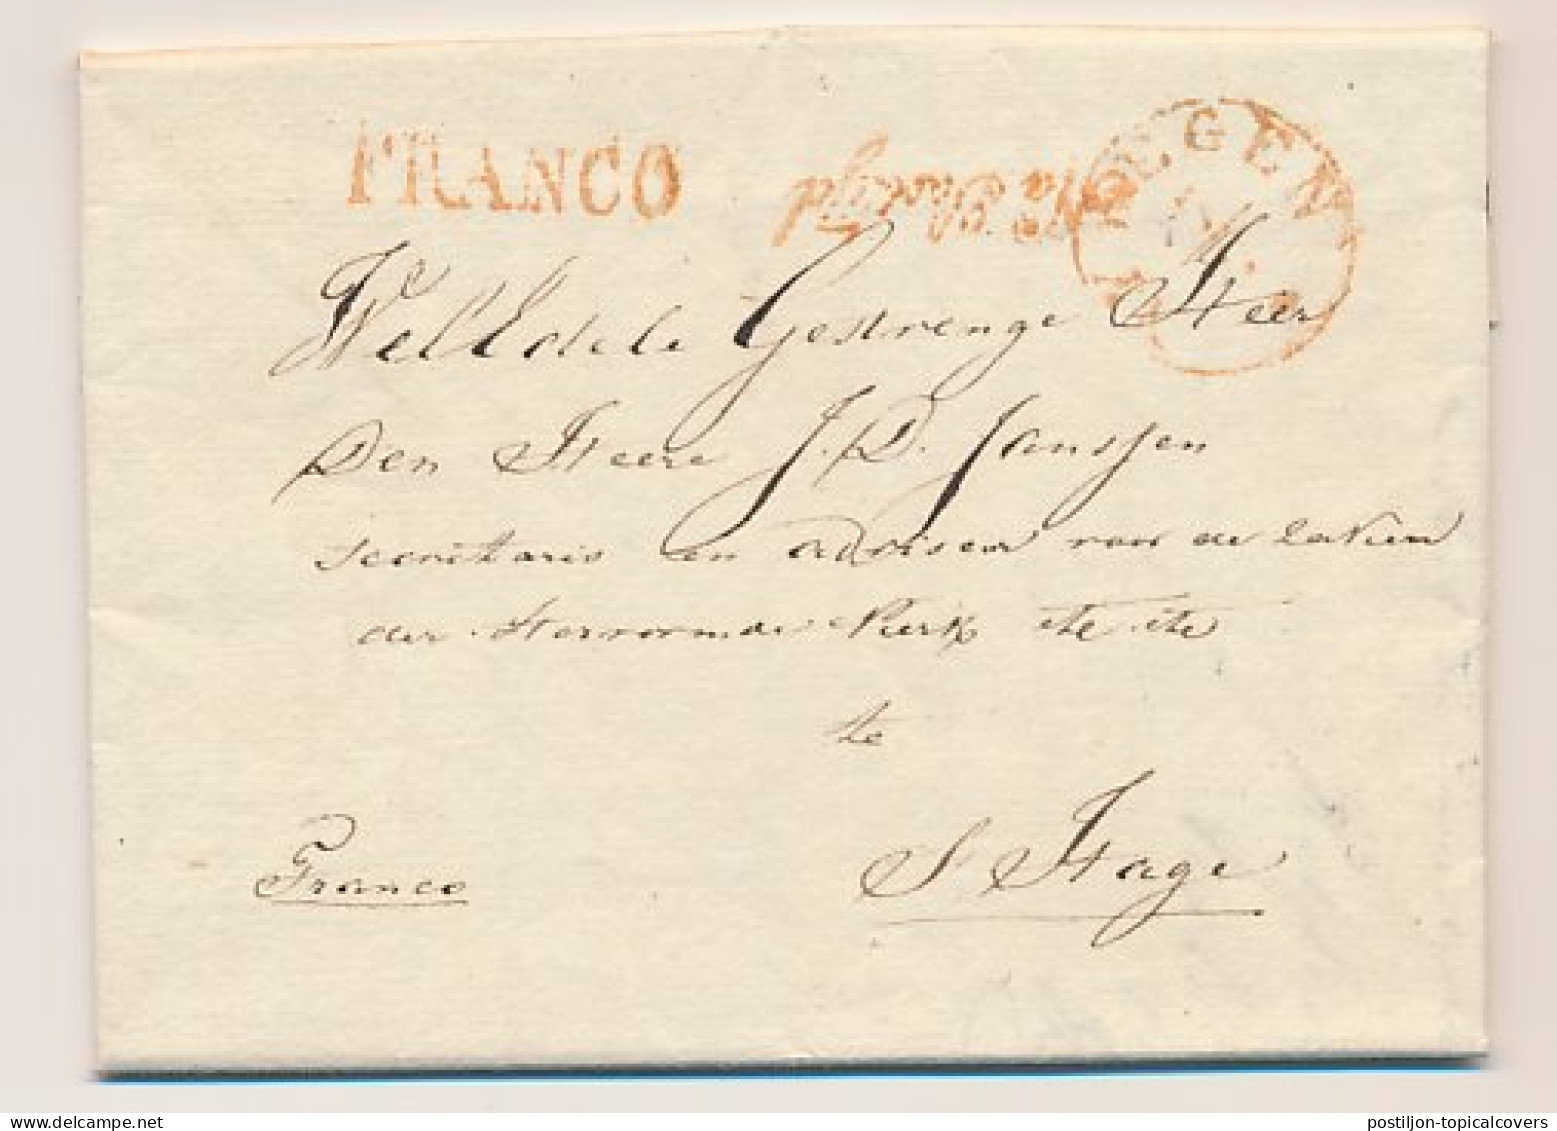 FRANCO
Na Posttijd
WelEdele Gestrenge Heer
Den Heere J. D. Janssen
secretaris en adviseur van de zaken
der Hervormde Kerk etc etc
te
S Hage
Franco
postiljon-topicalcovers